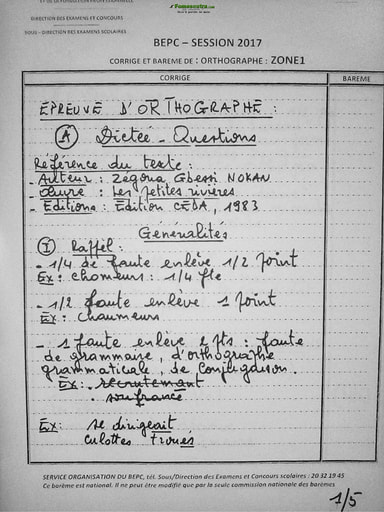 Fomesoutra.com
DIRECTION DES EXAMENS ET CONCOURS
SOUS - DIRECTION DES EXAMENS SCOLAIRES
BEPC – SESSION 2017
CORRIGE ET BAREME DE : ORTHOGRAPHE : ZONE1
CORRIGE
BAREME
EPREUVE D'ORTHOGRAPHE :
A Dictée - Questions
Référence du texte :
- Auteur : Zégoua Gbessi NOKAN
- Œuvre : Les petites rivières
- Editions : Edition CEDA, 1983
Généralités
I Rappel :
- 1/4 de faute enlève 1/2 point
Ex : chomeurs : 1/4 fte
- 1/2 faute enlève 1 point
Ex : Chaumeurs
- 1 faute enlève 2 pts : faute
de grammaire, d'orthographe
grammaticale, de conjugaison.
Ex : recrutemant
. soufrance
Ex : se dirigeait
culottes troués
SERVICE ORGANISATION DU BEPC, tél. Sous/Direction des Examens et Concours scolaires : 20 32 19 45
Ce barème est national. Il ne peut être modifié que par la seule commission nationale des barèmes
1/5